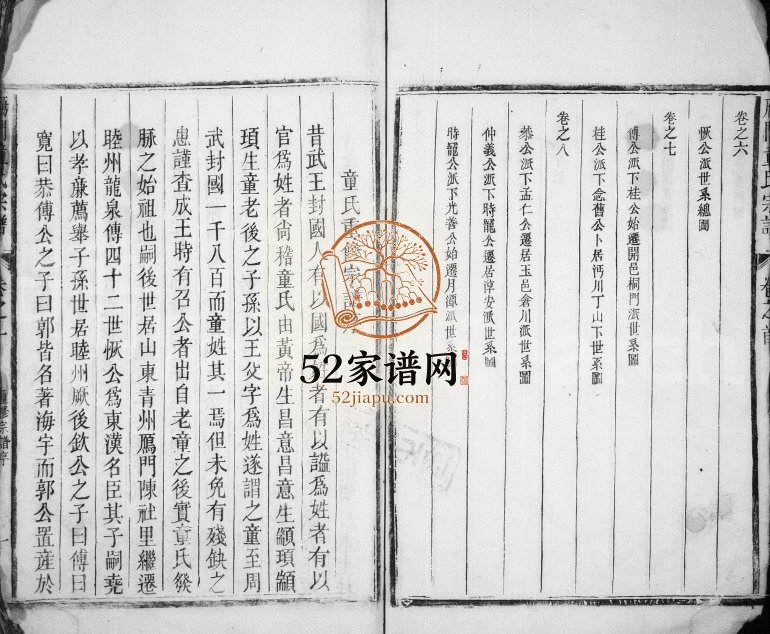 卷之六
恢公派世系總圖
卷之七
傅公派下桂公始遷開邑桐門派世系圖
桂公派下念舊公卜居馮川丁山下世系圖
卷之八
恭公派下孟仁公遷居玉邑倉川派世系圖
仲義公派下時龍公遷居淳安派世系圖
時龍公派下光善公始遷月潭派世系
童氏重修宗譜
昔武王封國人有以國為姓者有以謚為姓者有以
官為姓者尚稽童氏由黃帝生昌意昌意生顓頊顓
頊生童老後之子孫以王父字為姓遂謂之童至周
武封國一千八百而童姓其一焉但未免有殘缺之
患謹查成王時有召公者出自老童之後實童氏發
脉之始祖也嗣後世居山東青州鴈門陳社里繼遷
睦州龍泉傳四十二世恢公為東漢名臣其子嗣堯
以孝廉薦舉子孫世居睦州厥後欽公之子曰傅曰
寬曰恭傅公之子曰郭皆名著海宇而郭公置產於
重修宗譜序
一
52家谱网
52jiapu.com